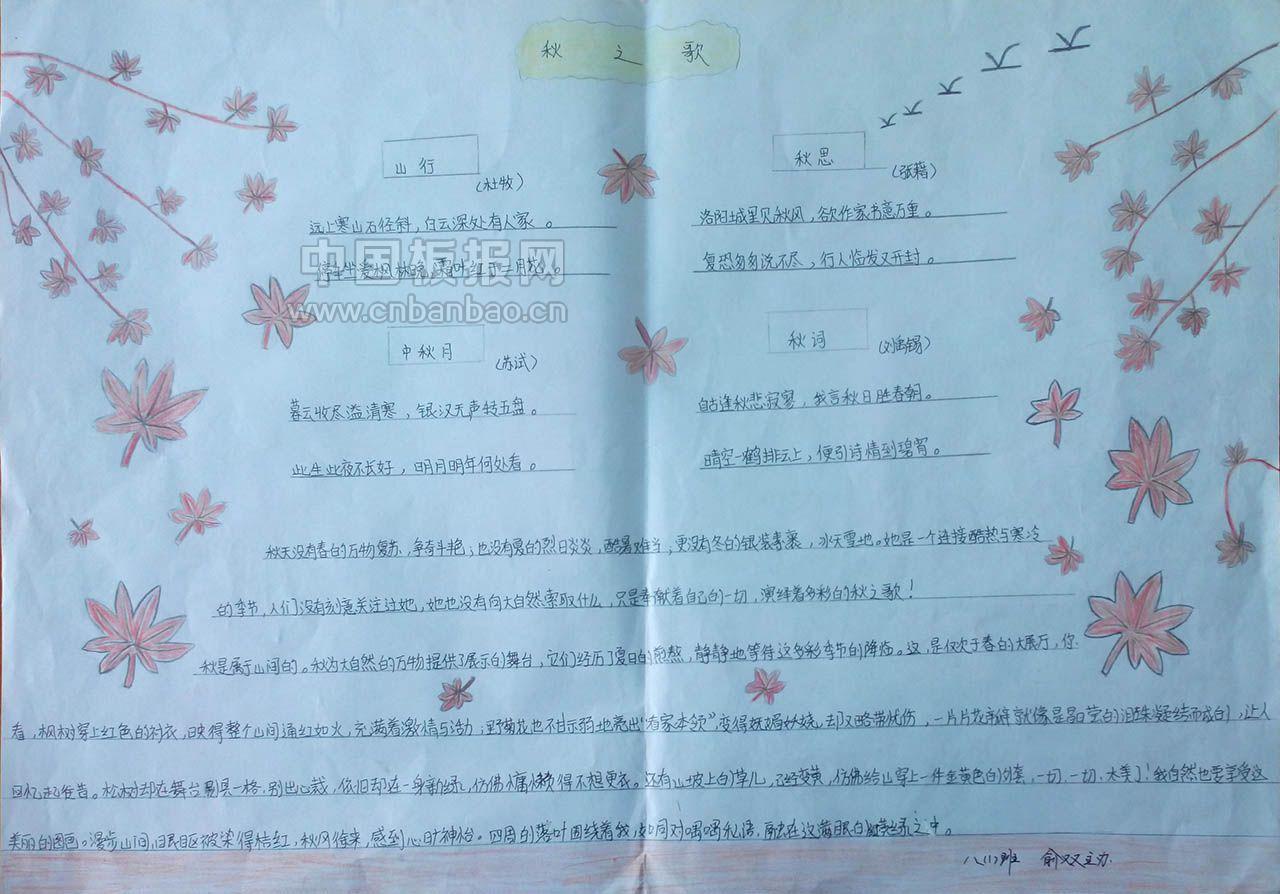 秋之歌
山行
(杜牧)
远上寒山石径斜，白云深处有人家。
停车坐爱枫林晚，霜叶红于二月花。
中国板报网
www.cnbanbao.cn
中秋月
(苏试)
暮云收尽溢清寒，银汉无声转玉盘。
此生此夜不长好，明月明年何处看。
秋思
(张籍)
洛阳城里见秋风，欲作家书意万重。
复恐匆匆说不尽，行人临发又开封。
秋词
(刘禹锡)
自古逢秋悲寂寥，我言秋日胜春朝。
晴空一鹤排云上，便引诗情到碧宵。
秋天没有春的万物复苏，争奇斗艳；也没有夏的烈日炎炎，酷暑难当；更没有冬的银装素裹，冰天雪地。她是一个连接酷热与寒冷
的季节，人们没有刻意关注过她，她也没有向大自然索取什么，只是奉献着自己的一切，演绎着多彩的秋之歌！
秋是属于山间的。秋为大自然的万物提供了展示的舞台，它们经历了夏日的煎熬，静静地等待这多彩季节的降临。这，是仅次于春的大展厅，你
看，枫树穿上红色的衬衣，映得整个山间通红如火，充满着激情与活力；野菊花也不甘示弱地亮出“看家本领”，变得妩媚妖娆，却又略带忧伤，一片片花瓣就像是晶莹的泪珠凝结而成的，让人
回忆起往昔。松树却在舞台别具一格，别出心裁，依旧却在一身新绿，仿佛慵懒得不想更衣。还有山坡上的草儿，已经变黄，仿佛给山穿上一件金黄色的外套，一切，一切，太美了！我自然也要享受这
美丽的图画。漫步山间，眼眶被染得桔红，秋风徐来，感到心旷神怡。四周的落叶围绕着我，如同对嘴嘴私语，
八(1)班 俞双